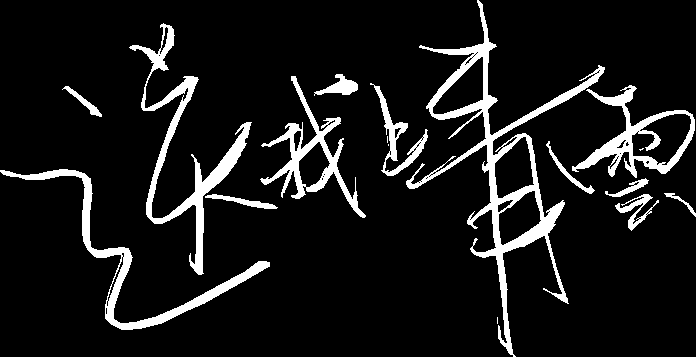 送我上青雲